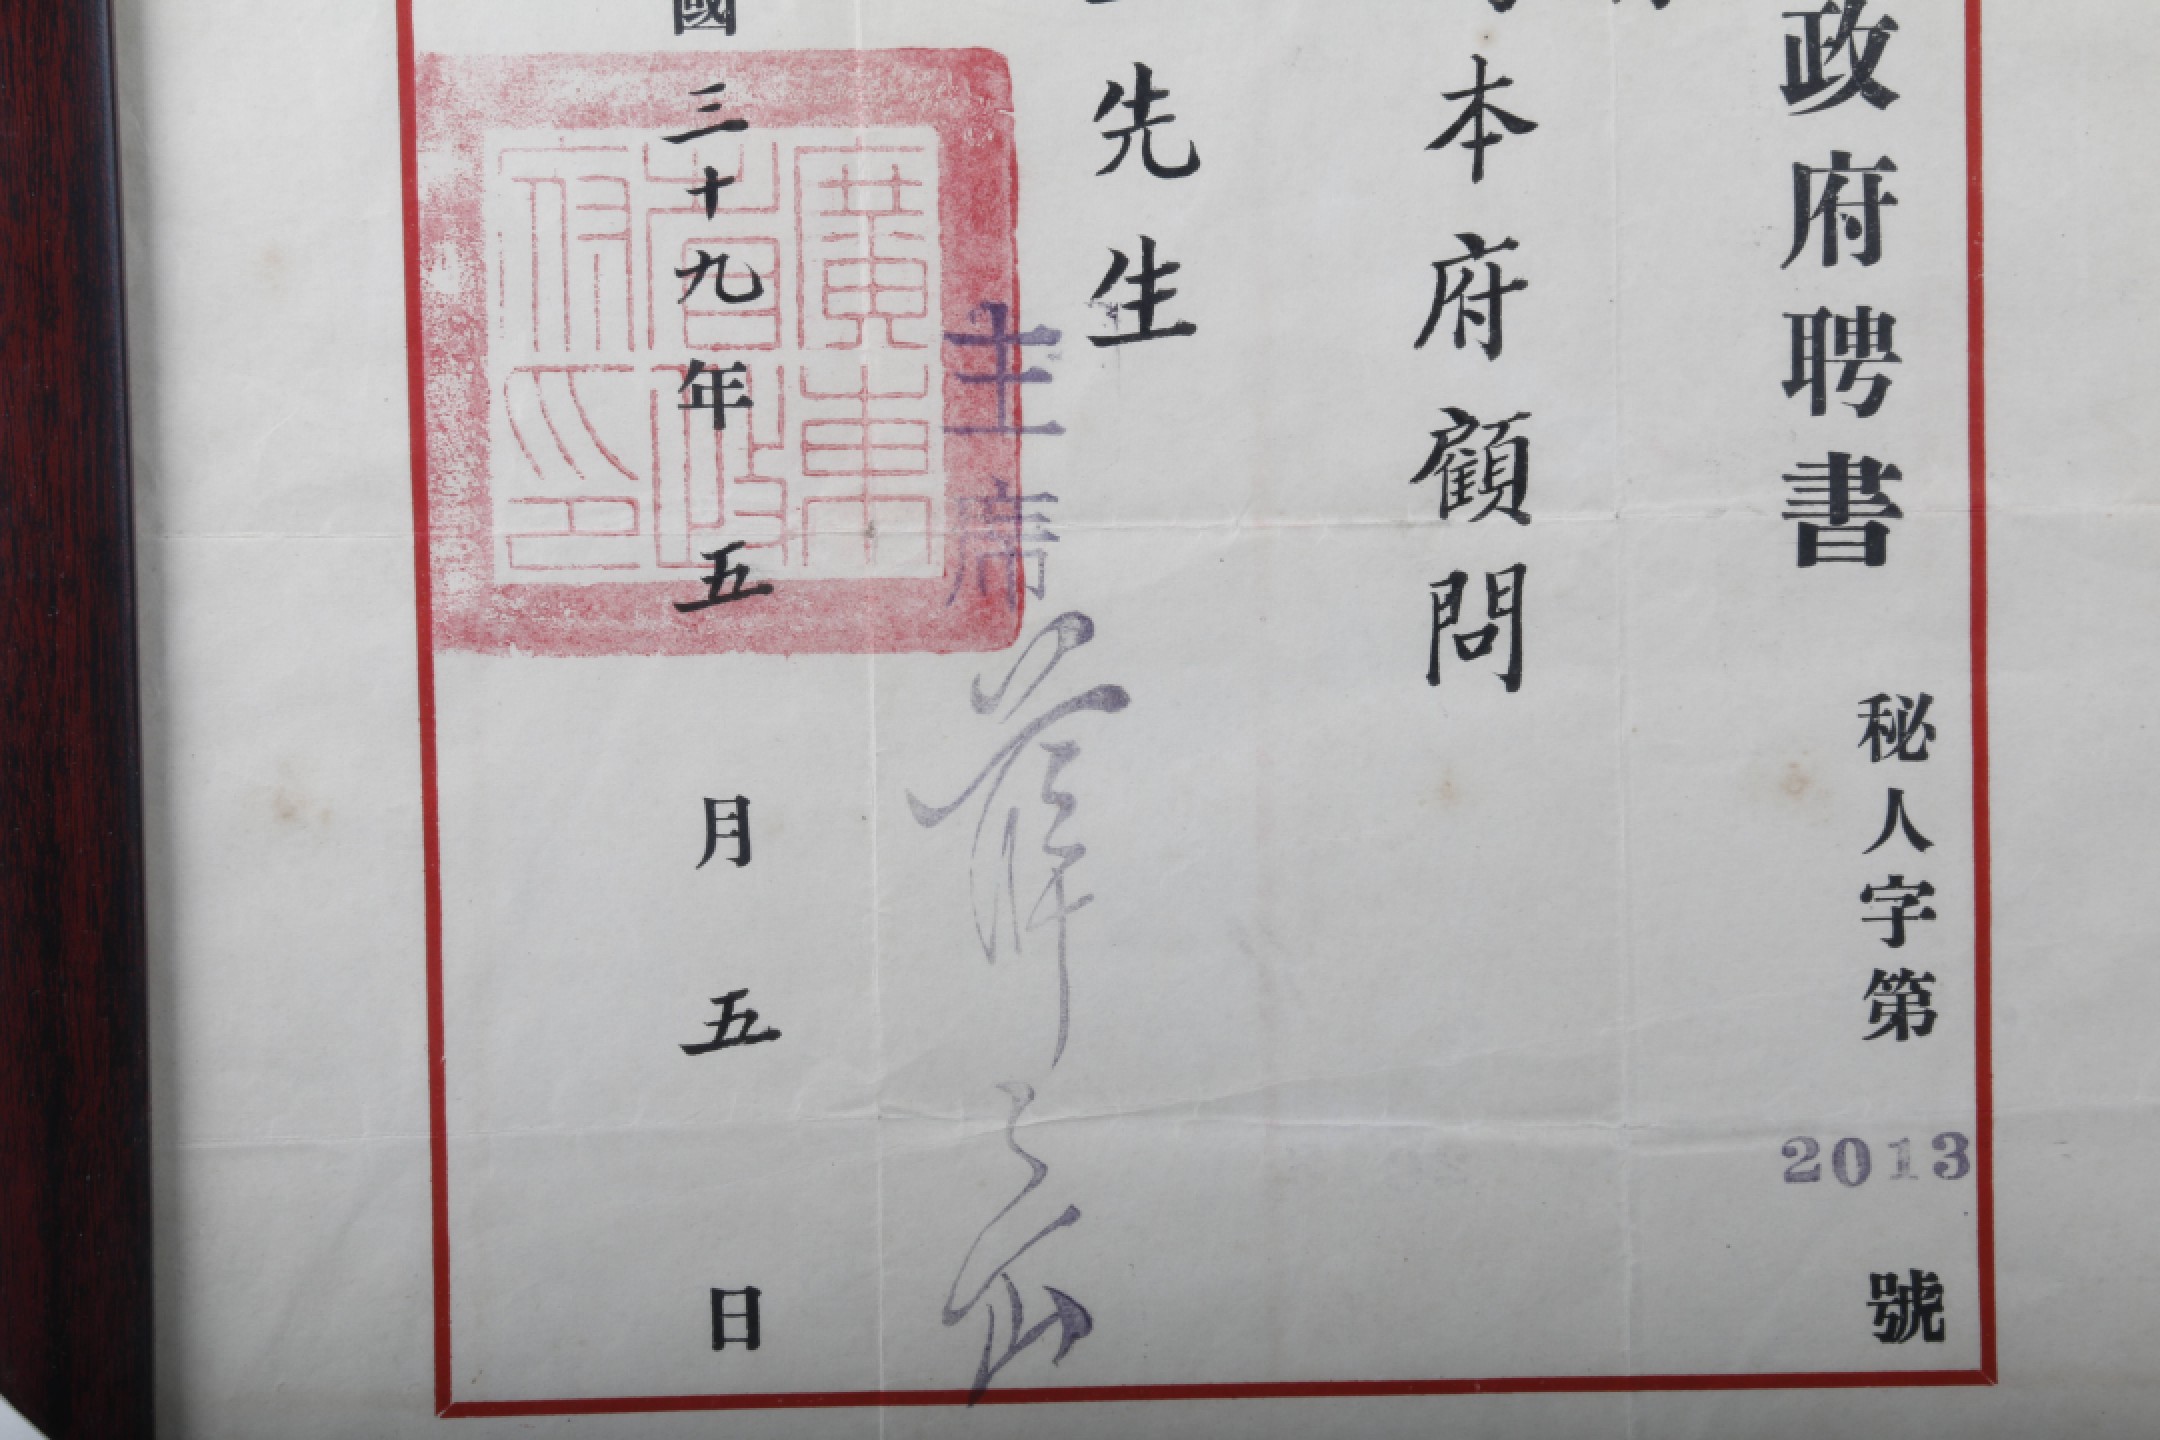 政府聘書
秘人字第2013號
本府顧問
先生
主席薛岳
國三十九年五月五日
廣東
省政
府印